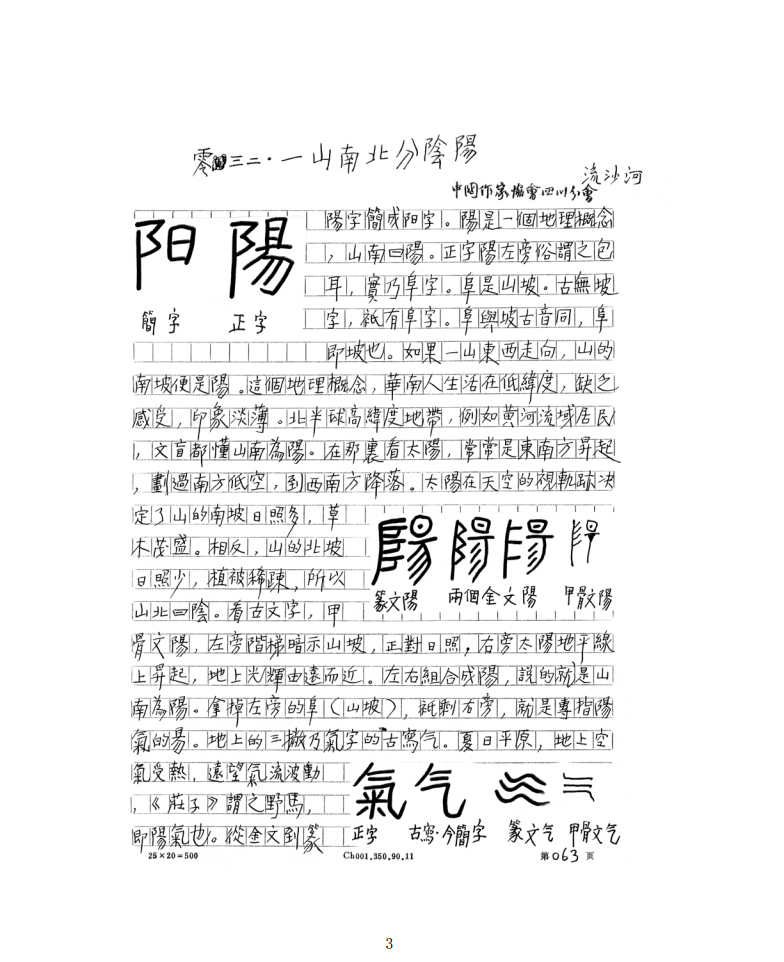 零三二·一山南北分陰陽
流沙河
中国作家協會四川分會
陽字簡成阳字。陽是一個地理概念
，山南曰陽。正字陽左旁俗謂之包
耳，實乃阜字。阜是山坡。古無坡
字，祇有阜字。阜與坡古音同，阜
即坡也。如果一山東西走向，山的
阳 陽
簡字 正字
南坡便是陽。這個地理概念，華南人生活在低緯度，缺乏
感受，印象淡薄。北半球高緯度地帶，例如黄河流域居民
，文盲都懂山南為陽。在那裏看太陽，常常是東南方昇起
，劃過南方低空，到西南方降落。太陽在天空的視軌跡决
定了山的南坡日照多，草
木茂盛。相反，山的北坡
日照少，植被稀疎，所以
山北曰陰。看古文字，甲
篆文陽 兩個金文陽 甲骨文陽
骨文陽，左旁階梯暗示山坡，正對日照，右旁太陽地平線
上昇起，地上光輝由遠而近。左右組合成陽，説的就是山
南為陽。拿掉左旁的阜（山坡），祇剩右旁，就是專指陽
氣的昜。地上的三撇乃氣字的古寫气。夏日平原，地上空
氣受熱，遠望氣流波動
，《莊子》謂之野馬，
即陽氣也。從金文到篆
氣 气
正字 古寫·今簡字 篆文气 甲骨文气
25×20=500 Ch001.350.90.11 第063页
3